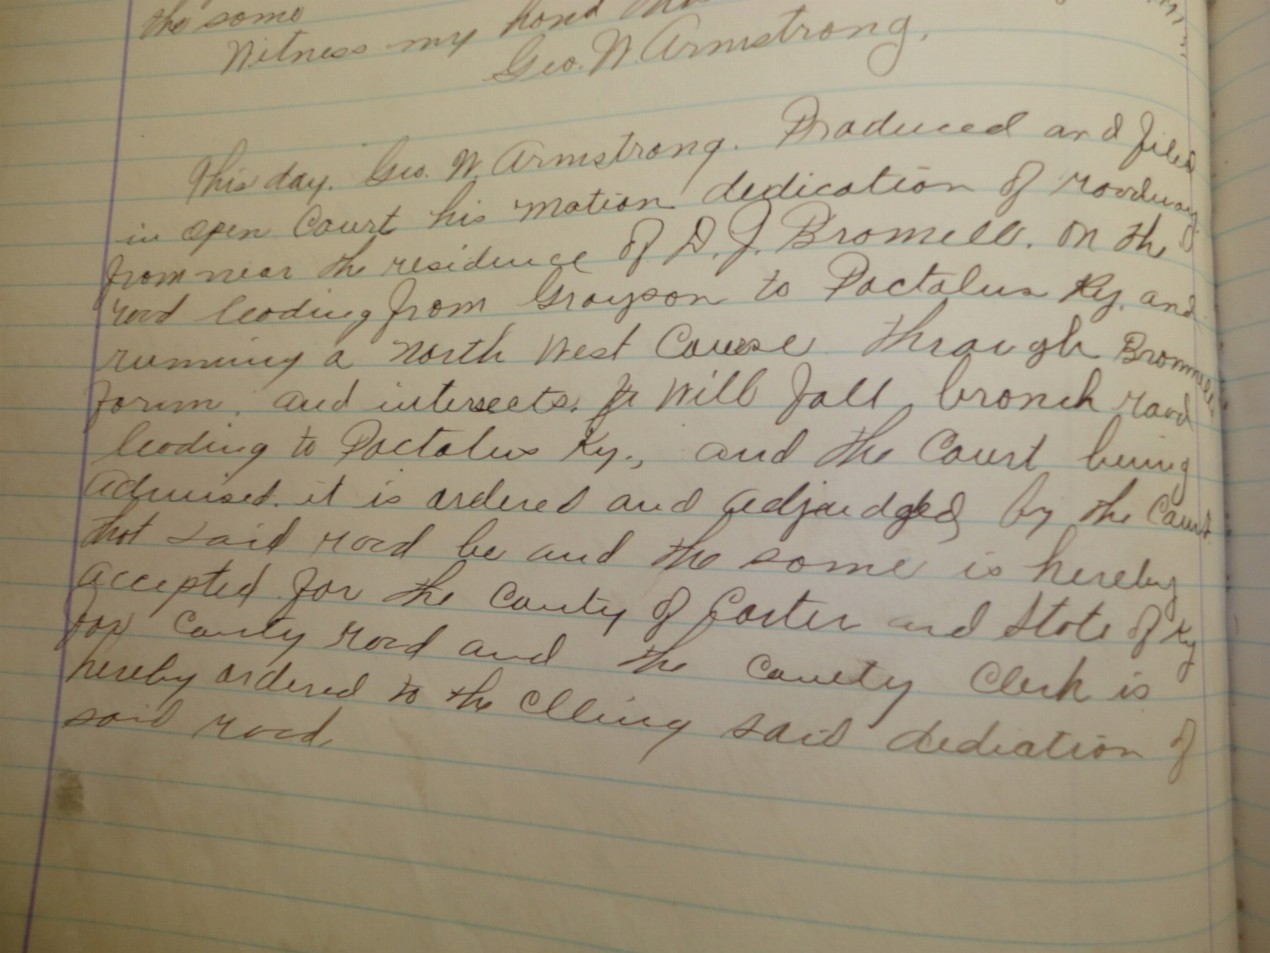 the same
Witness my hand
Geo. W. Armstrong.
This day. Geo. W. Armstrong. Produced and filed
in open Court his motion dedication of roadway
from near the residence of D. J. Bromell. on the
road leading from Grayson to Pactalus Ky. and
running a North West Course through Bromells
farm. and intersects. to Will fall branch road
leading to Pactalus Ky., and the Court being
advised. it is ordered and adjudged, by the Court
that said road be and the same is hereby
accepted for the Couty of Carter and State of Ky
for Couty road and the County Clerk is
hereby ordered to the said dediation of
said road.